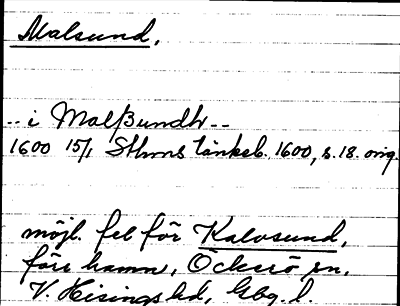 Malsund.
-- i Malßundh --
1600 15/1 Sthms tänkeb. 1600, s. 18. orig.
möjl. fel för Kalvsund,
förr hamn, Öckerö sn,
V. Hisings hd, Gbg. l.